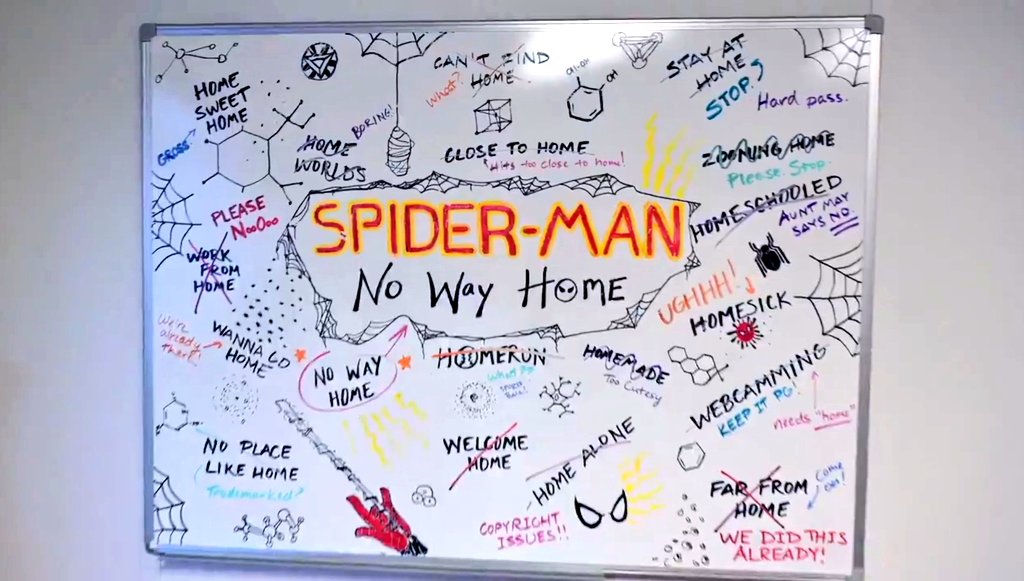 CAN'T FIND
HOME
Whoat?
STAY AT
HOME
STOP.
Hard pass.
HOME
SWEET
HOME
GROSS.
HOME
WORLDS
BORING!
OH
CLOSE TO HOME
Hits too close to home!
ZOOMING HOME
Please. Stop.
HOMESCHOOLED
AUNT MAY
SAYS NO
PLEASE
NooOoo
WORK
FROM
HOME
SPIDER-MAN
No Way Home
UGHHH!
HOMESICK
We're
already
there!
WANNA GO
HOME
NO WAY
HOME
HOOMERUN
HOMEMADE
Too Cutesy
WEBCAMMING
KEEP IT PG!
needs "home"
NO PLACE
LIKE HOME
Trademarked?
WELCOME
HOME
HOME ALONE
COPYRIGHT
ISSUES!!
FAR FROM
HOME
Come
on!
WE DID THIS
ALREADY!